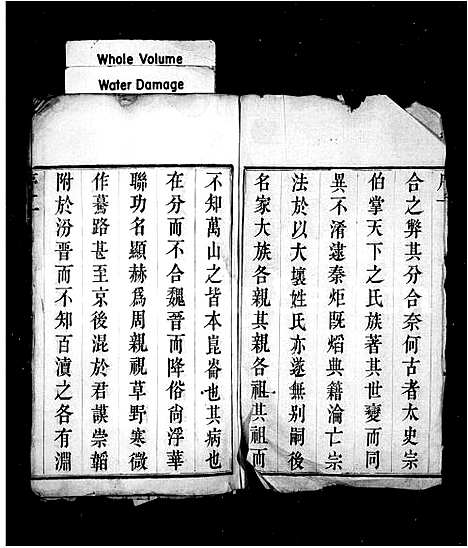 Whole Volume
Water Damage
合之弊其分合奈何古者太史宗
伯掌天下之氏族著其世變而同
異不淆逮秦炬既熖典籍淪亡宗
法於以大壞姓氏亦遂無别嗣後
名家大族各親其親各祖其祖而
不知萬山之皆本崑崙也其病也
在分而不合魏晉而降俗尚浮華
聯功名顯赫為周親視草野寒微
作驀路甚至京後混於君謨崇韜
附於汾晋而不知百瀆之各有淵
序二